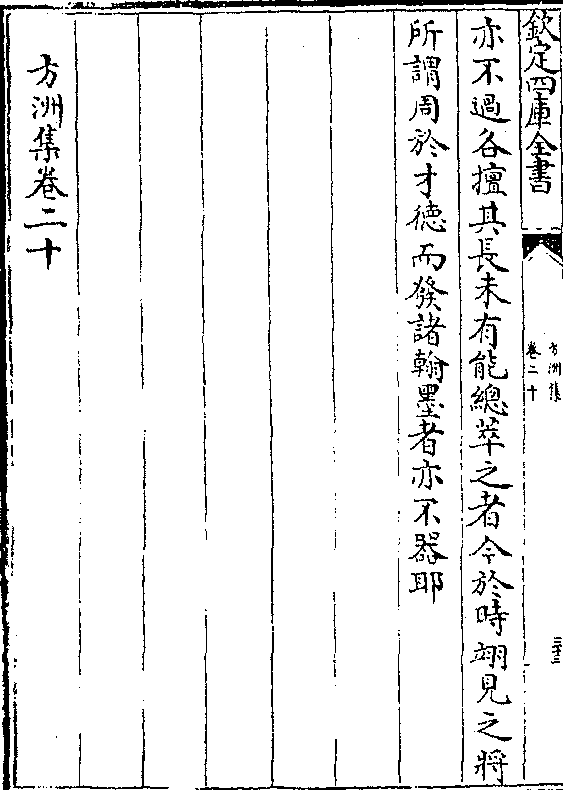 欽定四庫全書
方洲集
卷二十
三十三
亦不過各擅其長未有能總萃之者今於時翊見之將
所謂周於才德而發諸翰墨者亦不器耶
方洲集卷二十